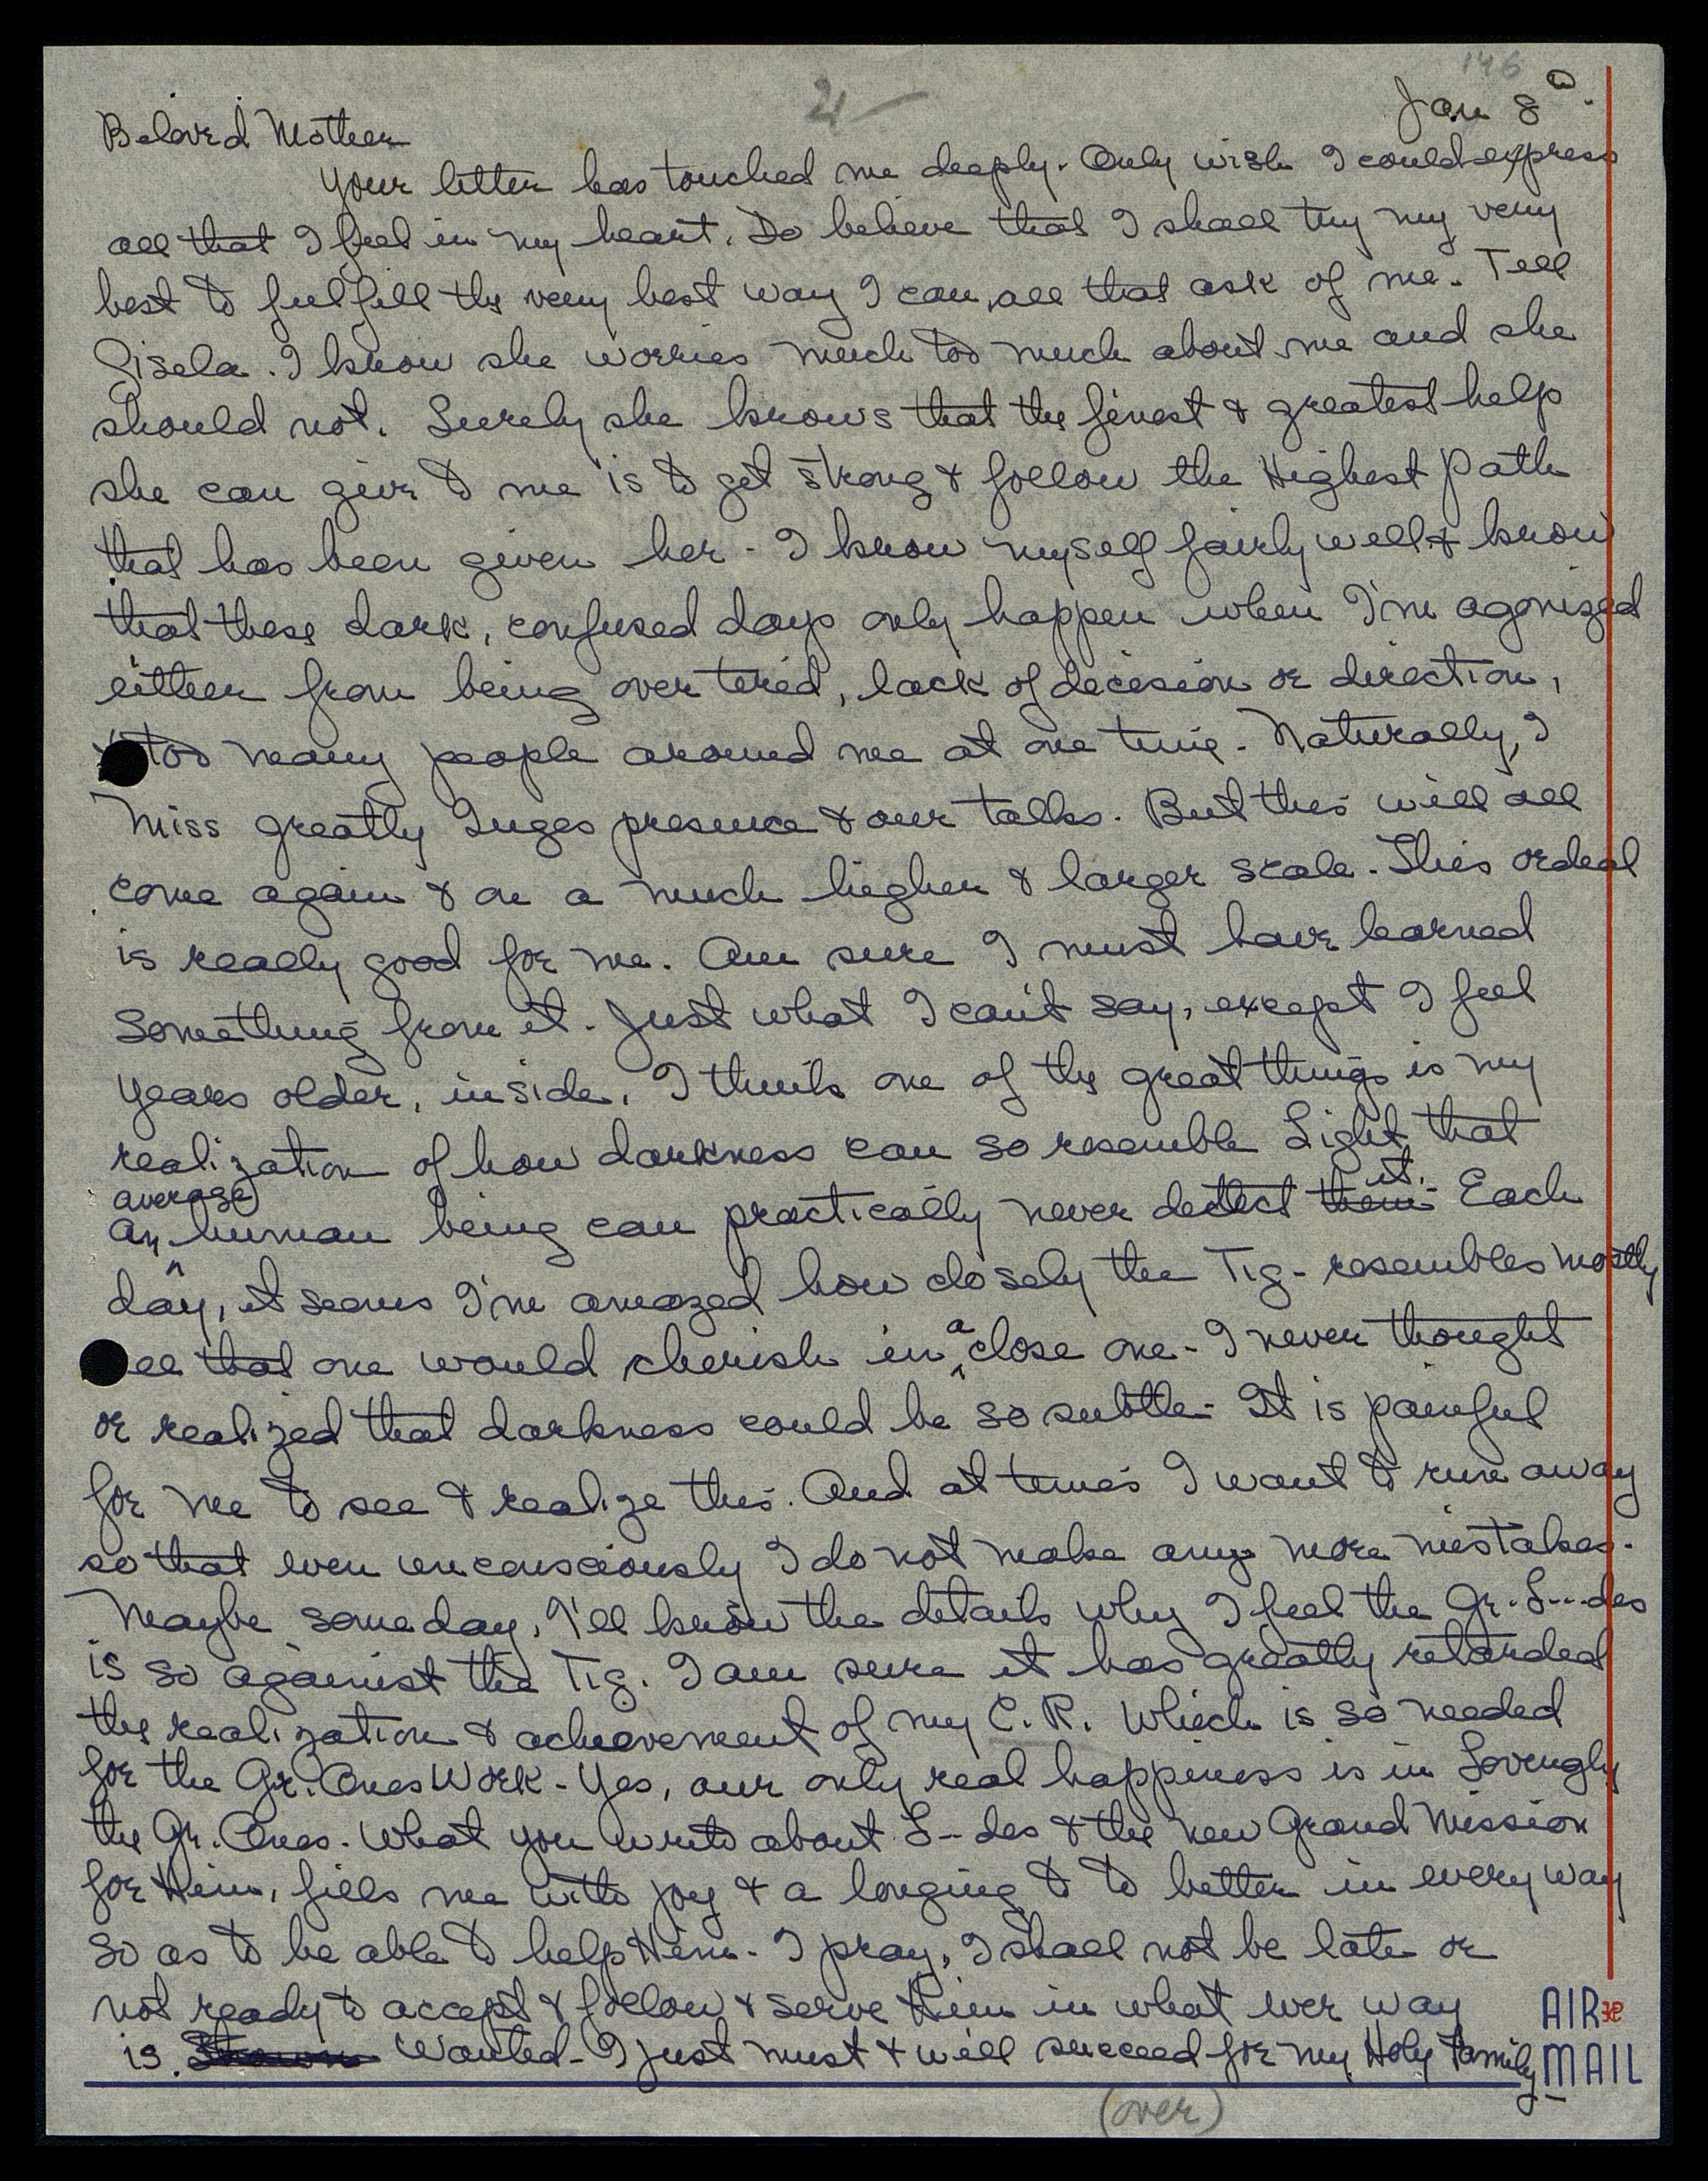 146
21
Jan 8th.
Beloved Mother
Your letter has touched me deeply. Only wish I could express
all that I feel in my heart. Do believe that I shall try my very
best to fulfill the very best way I can, all that ask of me. Tell
Gisela. I know she worries much too much about me and she
should not. Surely she knows that the finest & greatest help
she can give to me is to get strong & follow the Highest Path
that has been given her - I know myself fairly well & know
that these dark, confused days only happen when I'm agonized
either from being over tired, lack of decision or direction,
too many people around me at one time. Naturally, I
miss greatly Inges presence & our talks. But this will all
come again & on a much higher & larger scale. This ordeal
is really good for me. Am sure I must have learned
something from it. Just what I can't say, except I feel
years older, inside. I think one of the great things is my
realization of how darkness can so resemble Light, that
an average human being can practically never detect them it. Each
day, it seems I'm amazed how closely the Tig- resembles mostly
all that one would cherish in a close one - I never thought
or realized that darkness could be so subtle - It is painful
for me to see & realize this. And at times I want to run away
so that even unconsciously I do not make any more mistakes.
Maybe someday, I'll know the details why I feel the Gr. L---des
is so against the Tig. I am sure it has greatly retarded
the realization & achievement of my C. R. Which is so needed
for the Gr. Ones Work - Yes, our only real happiness is in Lovingly
the Gr. Ones. What you write about L--des & the new Grand Mission
for Him, fills me with joy & a longing to to better in every way
so as to be able to help Him - I pray, I shall not be late or
not ready to accept & follow & serve Him in what ever way
is. Wanted - I just must & will succeed for my Holy Family -
AIR
MAIL
(over)